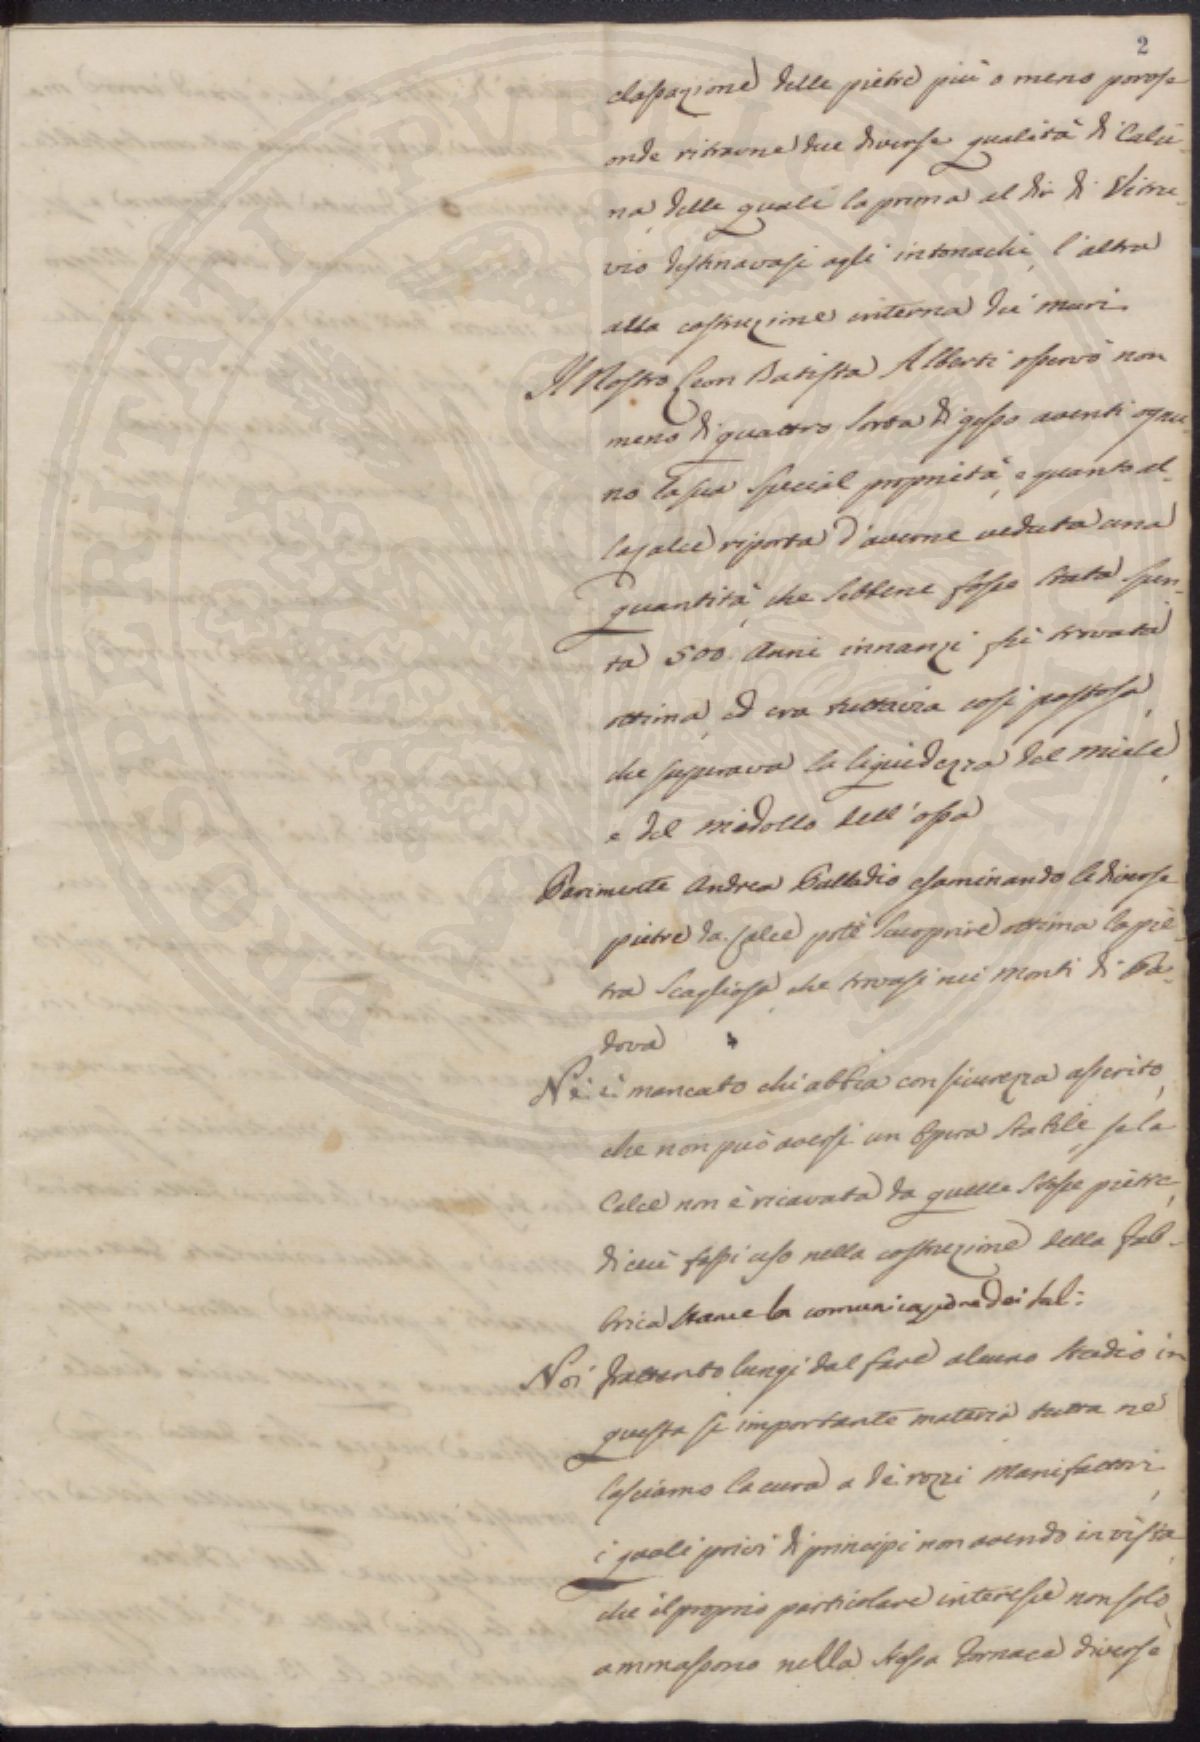 2
classazione delle pietre più o meno porose
onde ritraone due diverse qualità di Calci-
na, delle quali la prima al dir di Vitru-
vio destinavasi agli intonachi, l'altra
alla costruzione interna dei muri.
Il Nostro Leon Batista Alberti osservò non
meno di quattro sorta di gesso aventi ognu-
no la sua special proprietà, e quanto al-
la calce riporta d'averne veduta una
quantità, che sebbene fosse stata spen-
ta 500. Anni innanzi fù trovata
ottima, ed era tuttavia così pastosa,
che superava la liquidezza del miele,
e del midollo dell'ossa
Parimente Andrea Palladio esaminando le diverse
pietre da calce potè scuoprire ottima la pie-
tra scagliosa, che trovasi nei Monti di Pa-
dova
Nè è mancato chi abbia con sicurezza asserito,
che non può aversi un Opera stabile, se la
Calce non è ricavata da quelle stesse pietre,
di cui fassi uso nella costruzione della fab-
brica stante la comunicazione dei sali:
Noi frattanto lungi dal fare alcuno studio in
questa sì importante materia tutta ne
lasciamo la cura a dè rozzi Manifattori,
i quali privi di principj non avendo in vista
che il proprio particolare interesse non solo
ammassono nella stessa Fornace diverse
POSPERITATI PVBLICAE